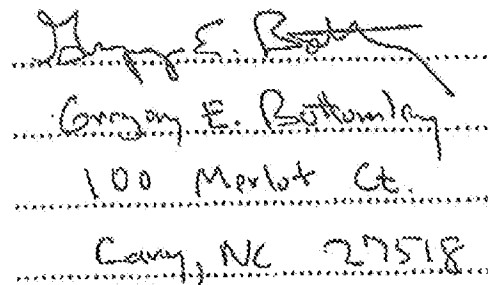 Gregory E. Bottomley
Gregory E. Bottomley
100 Merlot Ct.
Cary, NC 27518